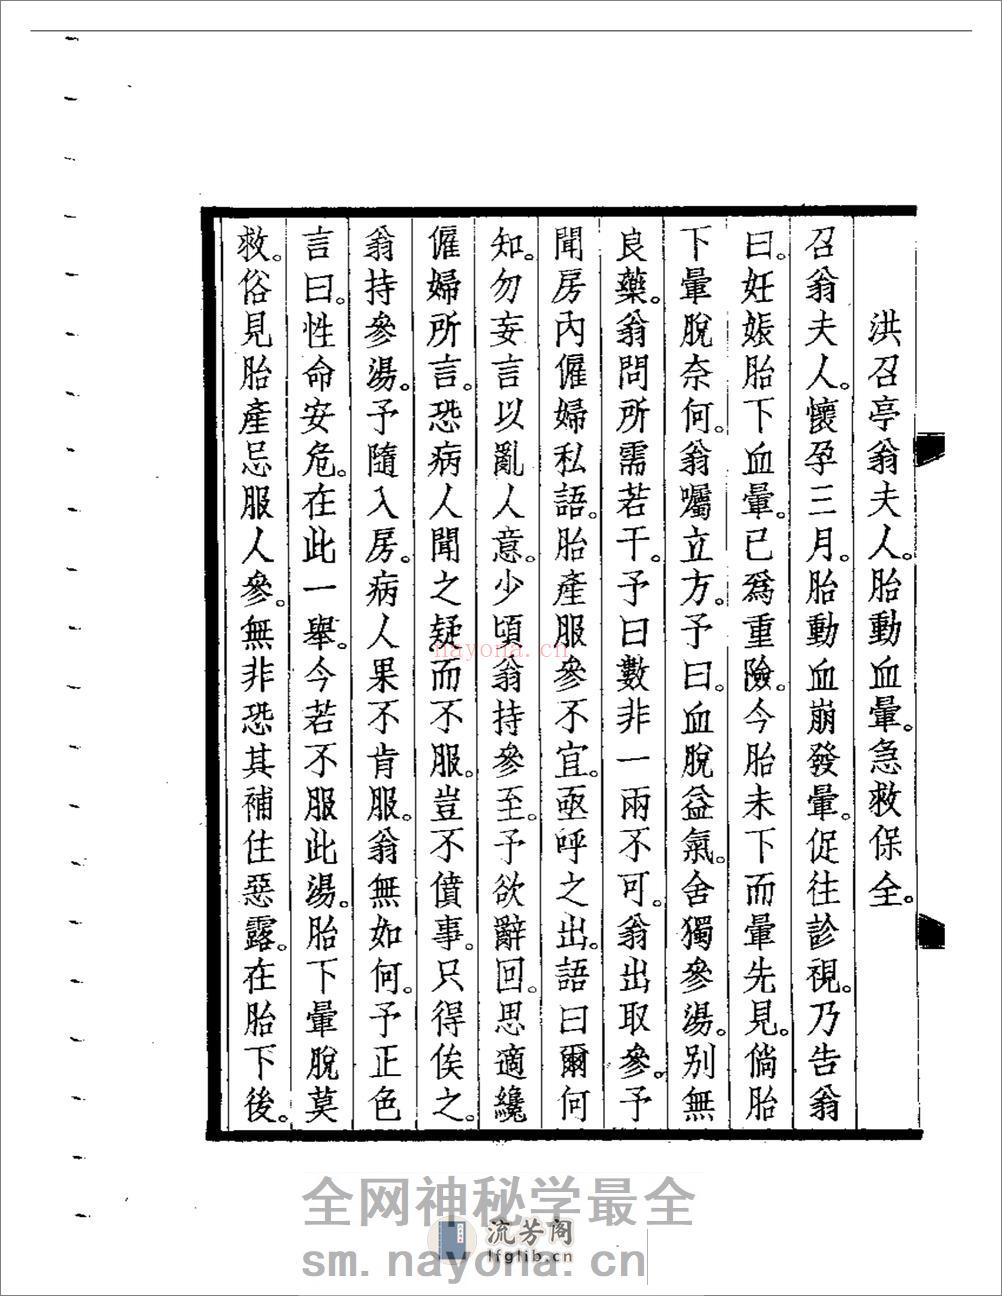 洪召亭翁夫人。胎動血暈。急救保全。
召翁夫人。懷孕三月。胎動血崩發暈。促往診視。乃告翁
曰。妊娠胎下血暈。已爲重險。今胎未下而暈先見。倘胎
下暈脫奈何。翁囑立方。予曰。血脫益氣。舍獨參湯。别無
良藥。翁問所需若干。予曰數非一兩不可。翁出取參。予
聞房內僱婦私語。胎產服參不宜。亟呼之出。語曰爾何
知。勿妄言以亂人意。少頃翁持參至。予欲辭回。思適纔
僱婦所言。恐病人聞之疑而不服。豈不僨事。只得俟之。
翁持參湯。予隨入房。病人果不肯服。翁無如何。予正色
言曰。性命安危。在此一舉。今若不服此湯。胎下暈脫莫
救。俗見胎產忌服人參。無非恐其補住惡露。在胎下後。
nayona.cn
全网神秘学最全
流芳阁
lfglib.cn
sm.nayona.cn